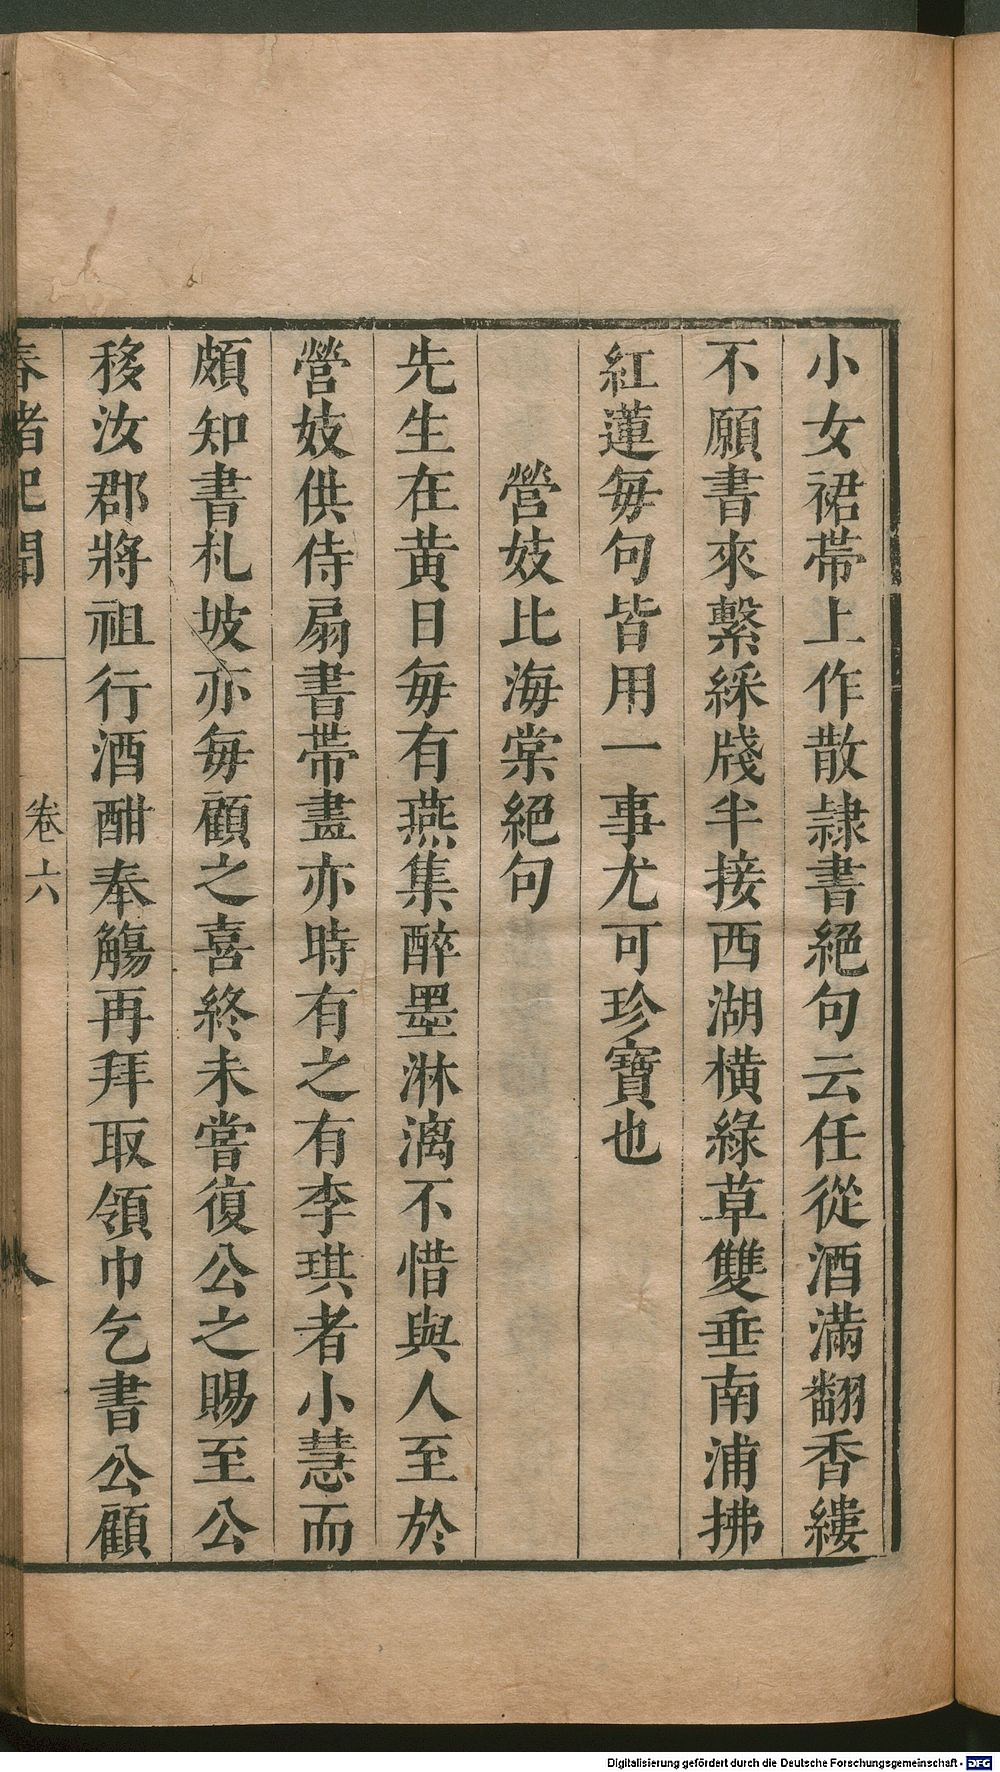 小女裙帶上作散隷書絕句云任從酒滿翻香縷
不願書來繫綵牋半接西湖橫綠草雙垂南浦拂
紅蓮每句皆用一事尤可珍寶也
營妓比海棠絕句
先生在黃日每有燕集醉墨淋漓不惜與人至於
營妓供侍扇書帶畫亦時有之有李琪者小慧而
頗知書札坡亦每顧之喜終未嘗復公之賜至公
移汝郡將祖行酒酣奉觴再拜取領巾乞書公顧
春渚紀聞
卷六
八
Digitalisierung gefördert durch die Deutsche Forschungsgemeinschaft - DFG